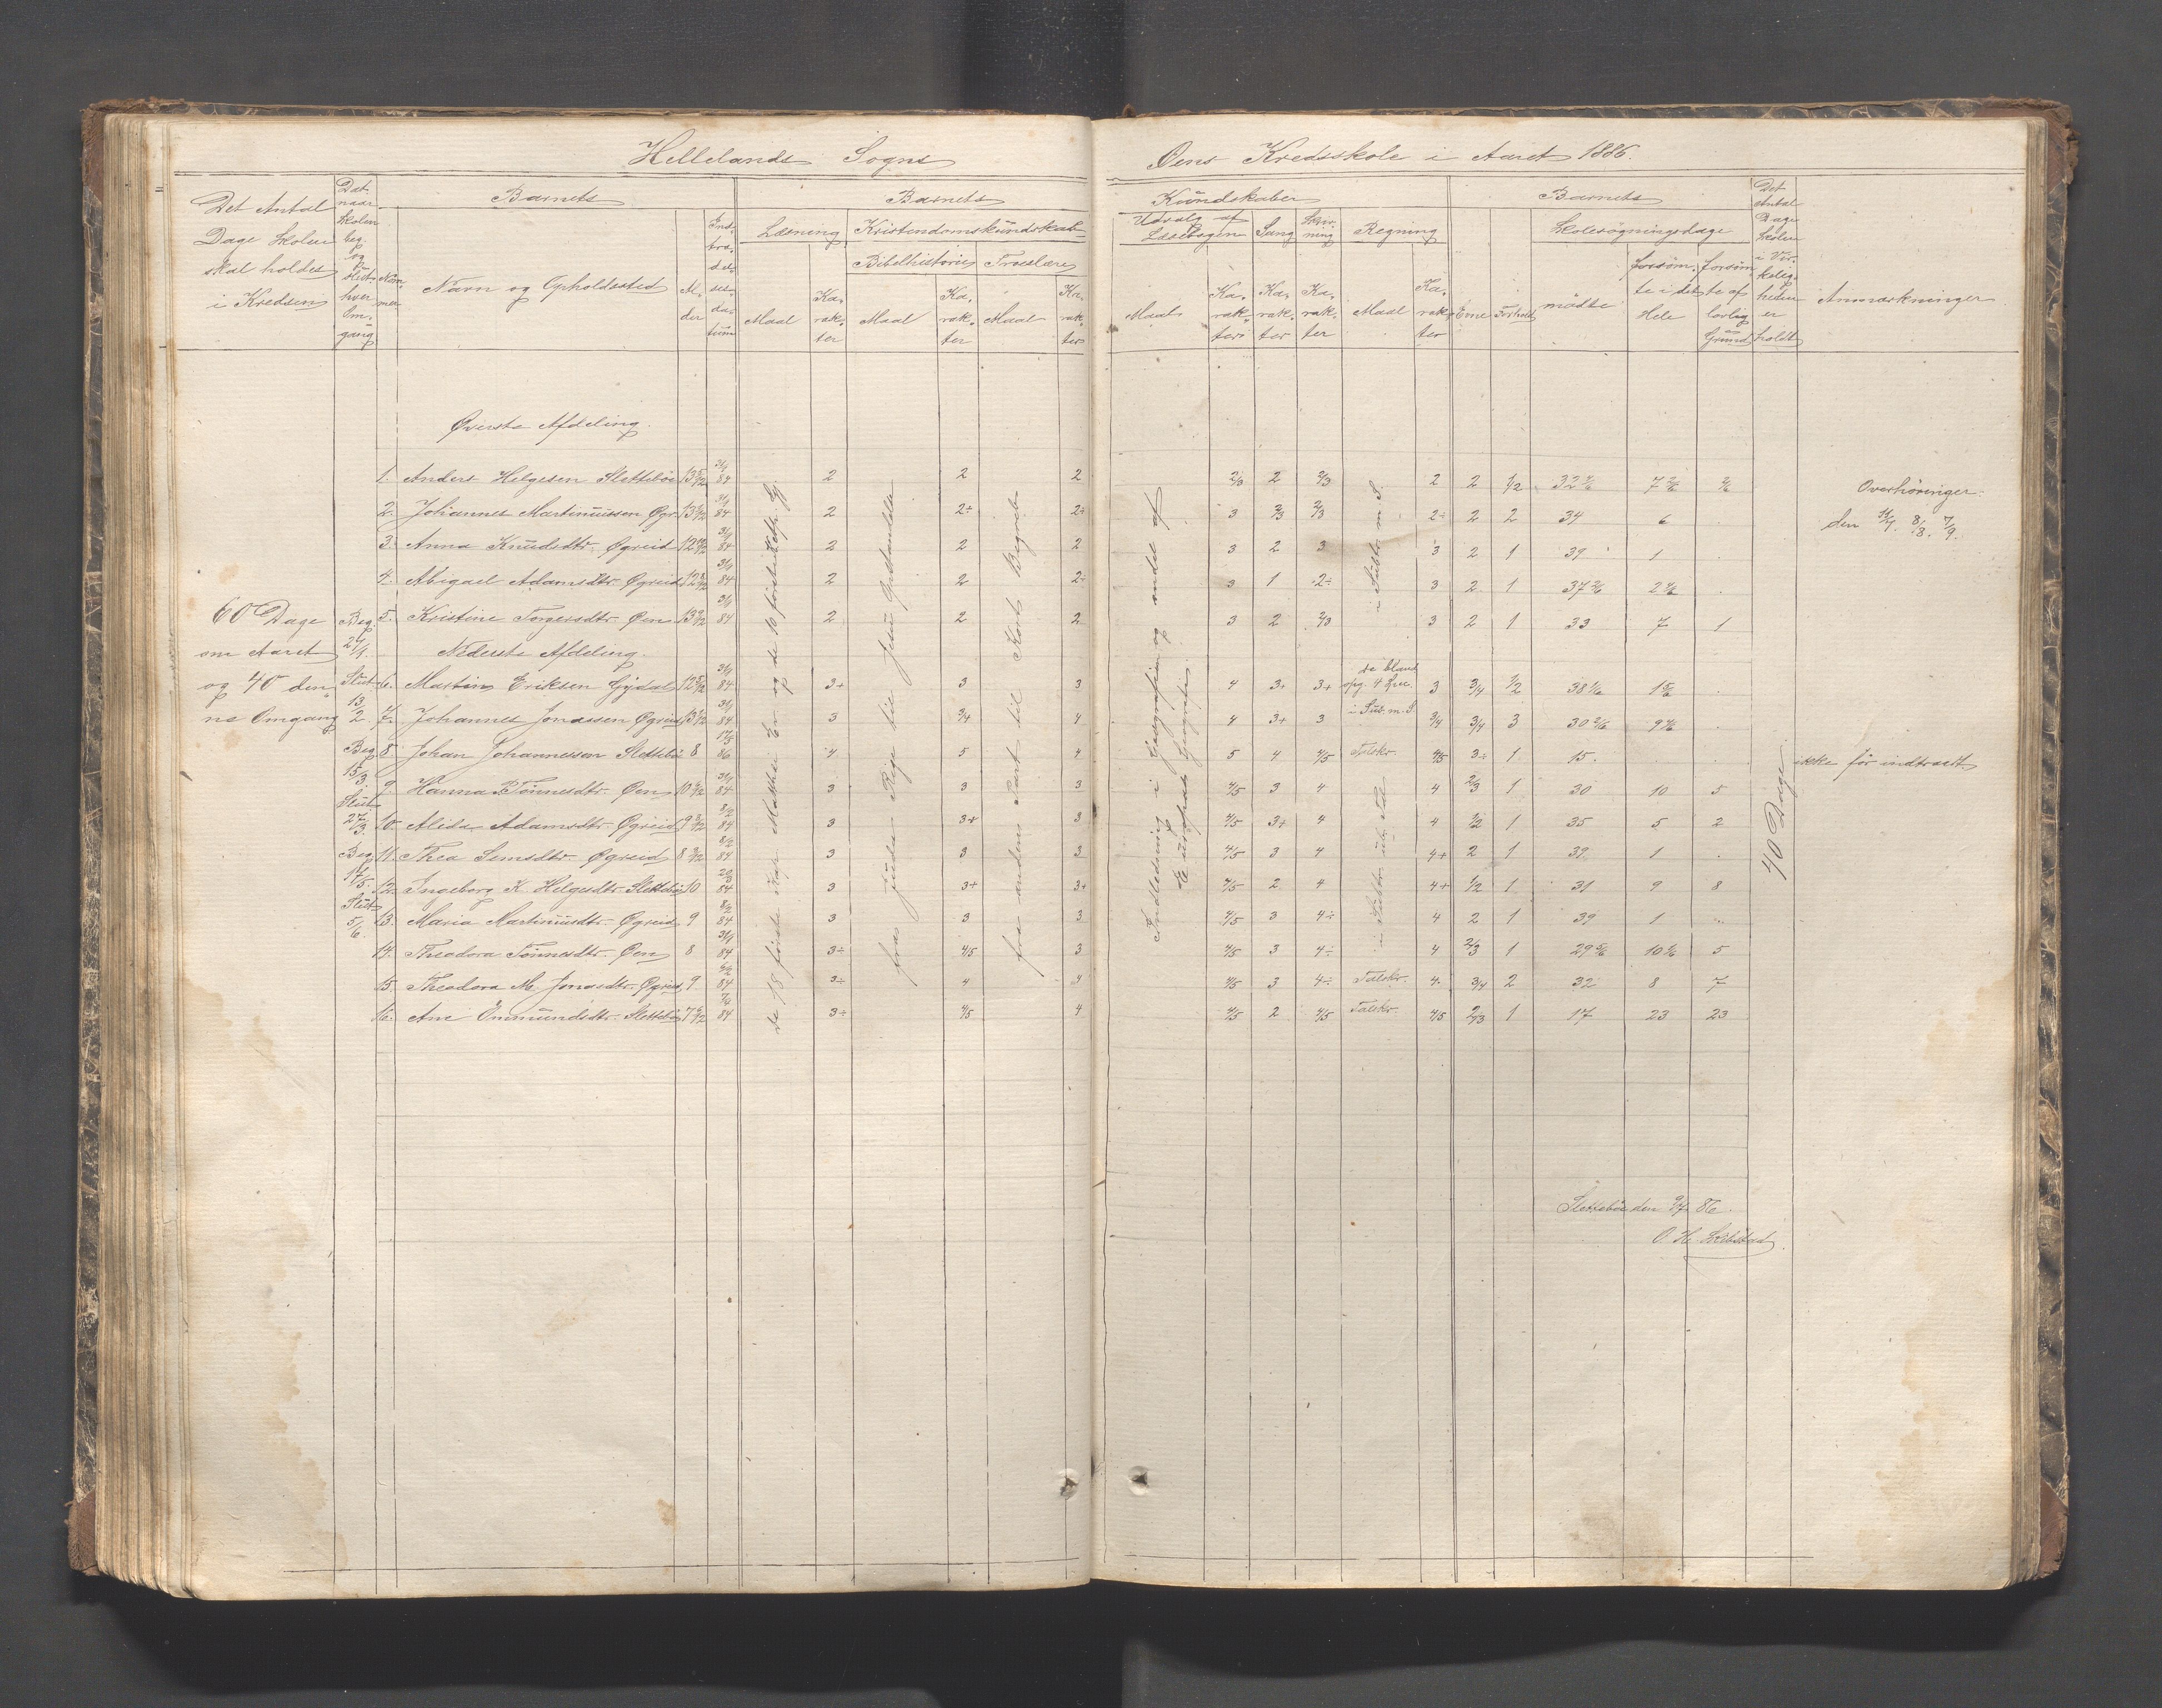 Hellelands Sogns
Øens Kredsskole i Aaret 1886.
Det Antal Dage Skolen skal holdes i Kredsen
Dat. naar Skolen beg. og slut. hver Om- gang
Barnets
Num- mer
Navn og Opholdssted
Al- der
Ind- træ- del- ses- da- tum
Barnets
Læsning
Maal
Ka- rak- ter
Kristendomskundskab
Bibelhistorie
Maal
Ka- rak- ter
Troeslære
Maal
Ka- rak- ter
Kundskaber
Udvalg af Læsebogen
Maal
Ka- rak- ter
Sang
Ka- rak- ter
Skriv- ning
Ka- rak- ter
Regning
Maal
Ka- rak- ter
Barnets
Evne
Forhold
Skolesøgningsdage
mødte
forsøm- te i det Hele
forsøm- te af lovlig Grund
Det Antal Dage Skolen i Vir- kelig- heden er holdt
Anmærkninger
Øverste Afdeling.
1. Anders Helgesen Slettebøe 13 5/12 31/1 84 2 2 2 2/3 2 2/3 2 2 1/2 32 7
2. Johannes Martinussen Øgr. 31/1 84 2 2÷ 2÷ 3 2/3 2/3 2÷ 2 2 34 6
3. Anna Knudsdtr. Øgreid 31/1 84 2 2 2 3 2 3 3 2 1 39 1
4. Abigael Adamsdtr. Øgreid 31/1 84 2 2 2÷ 3 1 2÷ 3 2 1 37 2
5. Kristine Torgersdtr. Øen 31/1 84 2 2 2 3 2 2/3 3 2 1 33 7 1
Nederste Afdeling.
6. Martin Eriksen Gydal 31/1 84 3+ 3 3 4 3+ 3+ 3 3/4 1/2 38 1
7. Johannes Jonassen Øgreid 31/1 84 3 3/4 4 4 3+ 3 3/4 3/4 3 30 9
8. Johan Johannessen Slettebø 8 17/3 86 4 5 4 5 4 4/5 Talskr. 4/5 3÷ 1 15. ikke før indtraadt
9. Hanna B Tønnesdtr. Øen 31/1 84 3 3 3 4/5 3 4 4 2/3 1 30 10 5
10. Alida Adamsdtr. Øgreid 8/2 84 3 3+ 3 4/5 3+ 4 4 1/2 1 35 5 2
11. Thea Semsdtr. Øgreid 8/2 84 3 3 3 4/5 3 4 4+ 2 1 39 1
12. Ingeborg K. Helgesdtr. Slettebø 10 84 3 3+ 3+ 4/5 2 4 4+ 1/2 1 31 9 8
13. Maria Martinusdtr. Øgreid 9 8/2 84 3 3 3 4/5 3 4÷ 4 2 1 39 1
14. Theodora Tønnesdtr. Øen 8 31/1 84 3÷ 4/5 3 4/5 3 4÷ 4 2/3 1 29 10 5
15. Theodora M. Jonasdtr. Øgreid 9 84 3÷ 4 4 4/5 3 4÷ Talskr. 4. 3/4 2 32 8 7
16. Ane Ommundsdtr. Slettebø 84 3÷ 4/5 4 4/5 2 4/5 Talskr. 4/5 2/3 1 17 23 23
60 Dage
om Aaret
og 40 den-
ne Omgang
Beg.
27/1.
Slut.
13/2.
Beg.
15/3
Slut.
27/3.
Beg.
Slut
5/6.
de 18 første Kap. Matthæi Ev. og de 10 første Kap. Gj.
fra Juda Rige til Jesu Opstandelse
fra anden Part til Korts Begreb
Indledning i Geografien og endel af
Europas Geografi
i Subtr. m. S.
de bland
opg. 4 Gru.
i Sub. m. S.
40 Dage
Overhøringer.
den 8/8. 7/9.
Slettebø den 9/7 86.
O. H. Skibstad